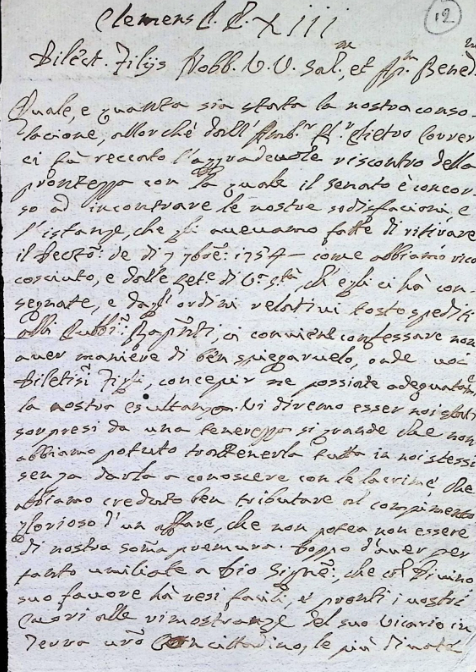 12
Clemens P. P. XIII
Dilect. Filijs Nobb. V. V. Sal.m et Ap.m Bened
Quale, e quanta sia stata la nostra conso
lazione, allorché dall' Amb.r K.r Pietro Correr
ci fù reccato l'aggradevole riscontro della
prontezza con la quale il Senato è concor
so ad incontrare le nostre sodisfazioni, e
l'istanze, che gli avevamo fatte di ritirare
il Decto: de di 7 7bre: 1754 - come abbiamo rico
nosciuto, e dalle che egli ci hà con
segnate, e dagl'ordini relativi tosto spediti
alli Pubbi: Rapnti, ci conviene confessare non
aver maniere di ben spiegarvelo, onde voi
Diletisi Figli, concepir ne possiate adeguatam
la nostra esultanza. Vi diremo esser noi stati
sorpresi da una tenerezza si grande che non
abbiamo potuto trattenerla tutta in noi stessi
senza darla a conoscere con le lacrime, che
abbiamo creduto ben tributare al compimento
glorioso d'un affare, che non potea non essere
di nostra soma premura. Doppo d'aver per
tanto umiliate a Dio Signe: che col Divino
suo favore hà resi facili, e pronti i vostri
Cuori alle rimostranze del suo Vicario in
Terra vro Concittadino, le più